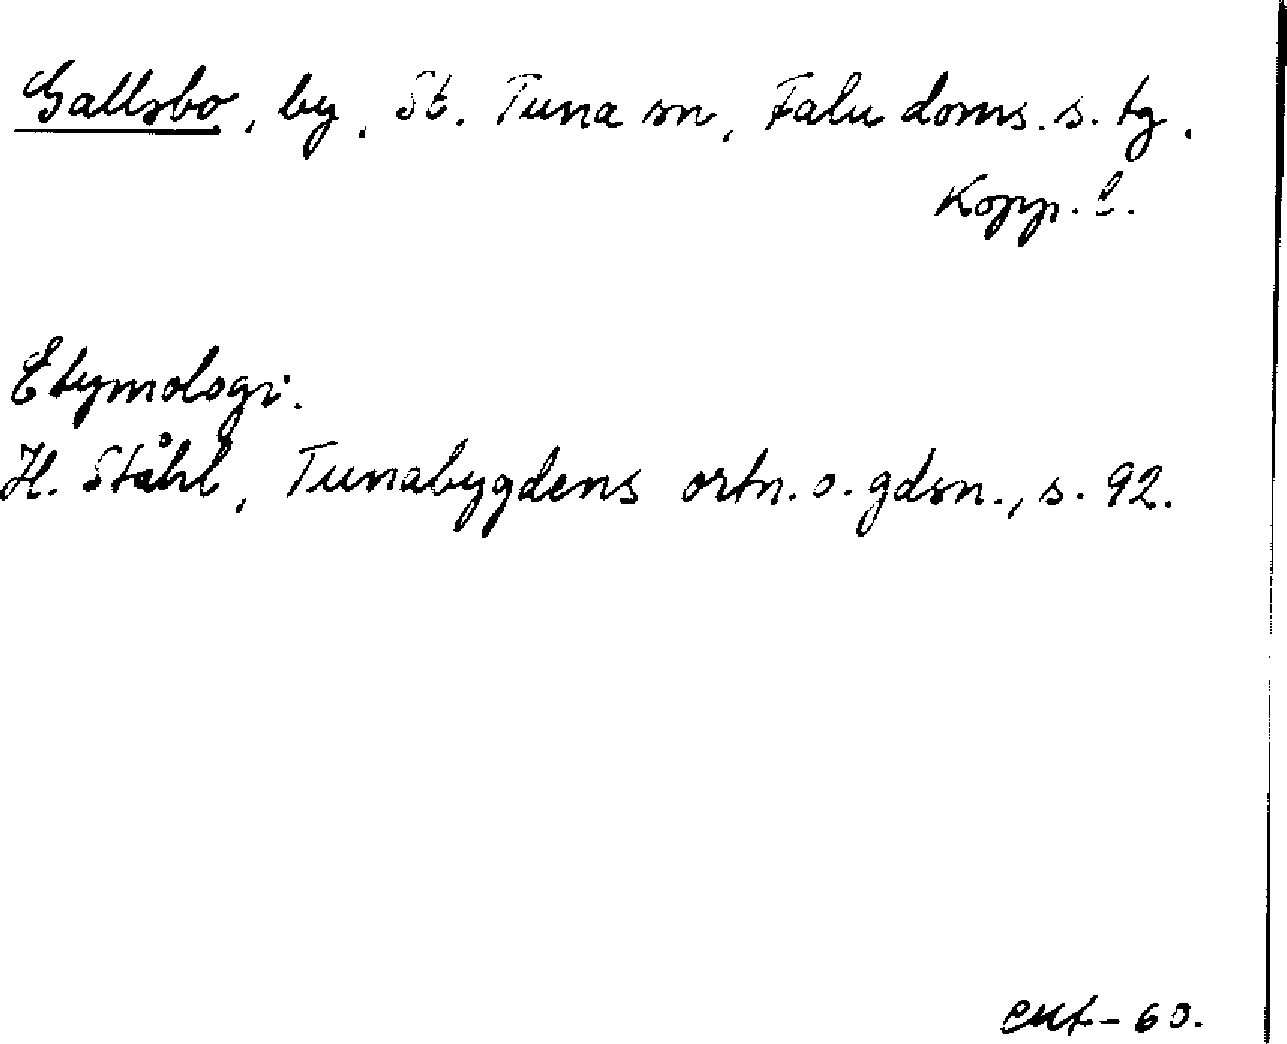 Gallsbo, by, St. Tuna sn, Falu doms. s. tg.
Kopp. l.
Etymologi.
H. Ståhl, Tunabygdens ortn. o. gdsn., s. 92.
60.